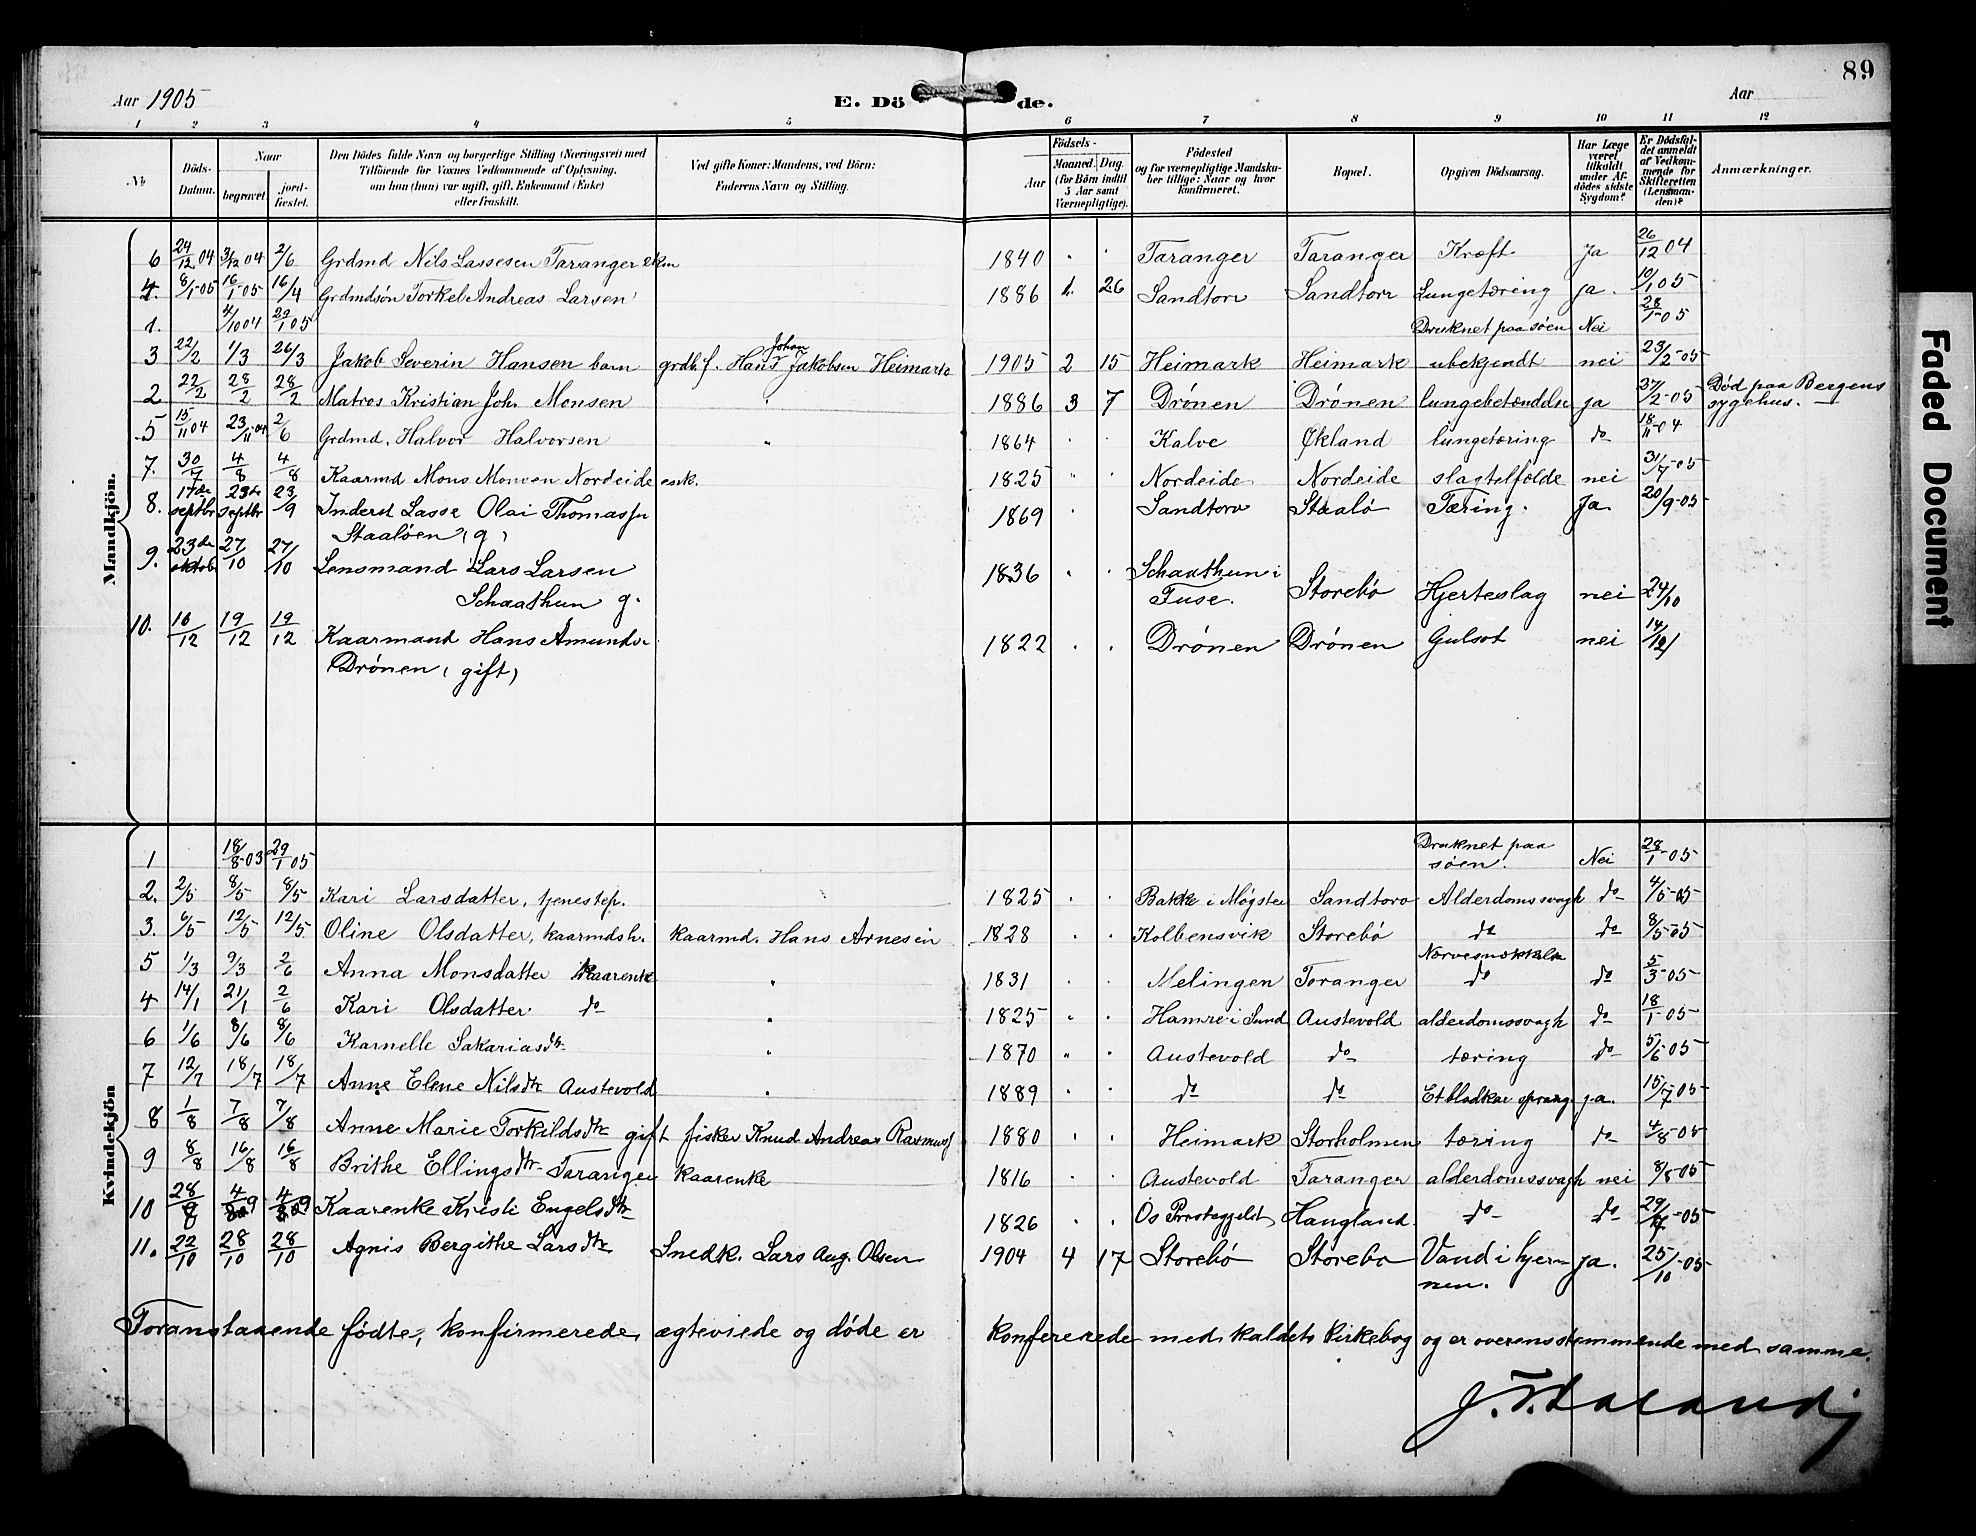 89
Aar 1905
E. Dö de.
Aar
1 2 3 4 5 6 7 8 9 10 11 12
No
Döds-Datum.
Naar
begravet. jordfæstet.
Den Dödes fulde Navn og borgerlige Stilling (Næringsvei) med
Tilföiende for Voxnes Vedkommende af Oplysning,
om han (hun) var ugift, gift, Enkemand (Enke)
eller fraskilt.
Ved gifte Koner: Mandens, ved Börn:
Faderens Navn og Stilling.
Födsels-
Aar Maaned. Dag.
(for Börn indtil 5 Aar samt Værnepligtige).
Födested
og for værnepligtige Mandskaber tillige: Naar og hvor konfirmeret.
Bopæl.
Opgiven Dödsaarsag.
Har Læge været tilkaldt under Afdödes sidste Sygdom?
Er Dödsfaldet anmeldt af Vedkommende for Skifteretten (Lensmanden)?
Anmærkninger.
Mandkjön.
6 24/12 04 3/12 04 2/6 Grdmd Nils Lassesen Taranger ekm 1840 Taranger Taranger Kræft Ja 26/12 04
4. 8/1-05 16/1-05 16/4 Grdmdsön Torkel Andreas Larsen 1886 1. 26 Sandtorv Sandtorv Lungetæring ja. 10/1 05
1. 4/10 04 29/1 05 Druknet paa söen Nei 28/1-05
3 22/2 1/3 26/3 Jakob Severin Hansen barn grdb. f. Hans Johan Jakobsen Heimark 1905 2 15 Heimark Heimark ubekjendt nei 23/2-05
2 22/2 28/2 28/2 Matros Kristian Joh Monsen 1886 3 7 Drönen Drönen lungebetændelse ja 27/2-05 Död paa Bergens
sygehus.
5 15/11 04 23/11 04 2/6 Grdmd. Halvor Halvorsen 1864 Kalve Økland lungetæring do 18/11 04
7. 30/7 4/8 4/8 Kaarmd Mons Monsen Nordeide enk. 1825 Nordeide Nordeide slagtelfælde nei 31/7-05
8. 17de septbr 23de septbr 23/9 Inderst Lasse Olai Thomassen
Staalöen, g, 1869 Sandtorv Staalö Tæring. Ja 20/9-05
9. 23de oktob 27/10 27/10 Lensmand Lars Larsen
Schaathun g. 1836 Schaathun i
Fuse. Storebö Hjerteslag nei 24/10
10. 16/12 19/12 19/12 Kaarmand Hans Amunds.
Drönen, gift, 1822 Drönen Drönen Gulsot nei 14/12
Kvindekjön
1 18/8-03 29/1 05 Druknet paa
söen. Nei 28/1-05
2. 2/5 8/5 8/5 Kari Larsdatter, tjenestep. 1825 Bakke i Møgster Sandtorv Alderdomssvagh do 4/5-05
3. 6/5 12/5 12/5 Oline Olsdatter, kaarmdsh. kaarmd. Hans Arnesen 1828 Kolbensvik Storebö do do 8/5-05
5 1/3 9/3 2/6 Anna Monsdatter kaarenke 1831 Melingen Toranger do do 5/3-05
4 14/1 21/1 2/6 Kari Olsdatter do 1825 Hamre i Sund Austevold alderdomssvagh do 18/1-05
6 1/6 8/6 8/6 Karnelle Sakariasdtr 1870 Austevold do tæring do 5/6-05
7 12/7 18/7 18/7 Anne Elene Nilsdtr Austevold 1889 do do Et blodkar sprang ja. 15/7-05
8 1/8 7/8 7/8 Anne Marie Torkildsdtr gift fisker Knud Andreas Rasmusf 1880 Heimark Storholmen tæring do 4/8-05
9 8/8 16/8 16/8 Brithe Ellingsdtr Taranger kaarenke 1816 Austevold Taranger alderdomssvagh nei 8/8-05
10 28/8 4/9 4/9 Kaarenke Kristi Engelsdtr 1826 Os Præstegjeld Haugland do do 29/-05
11. 22/10 28/10 28/10 Agnis Bergithe Larsdtr Snedk. Lars Aug. Olsen 1904 4 17 Storebö Storebö Vand i hjer-
nen. ja. 25/10-05
Foranstaaende födte, konfirmerede, ægteviede og döde er konfererede med kaldets kirkebog og er overensstemmende med samme.
Faded Document